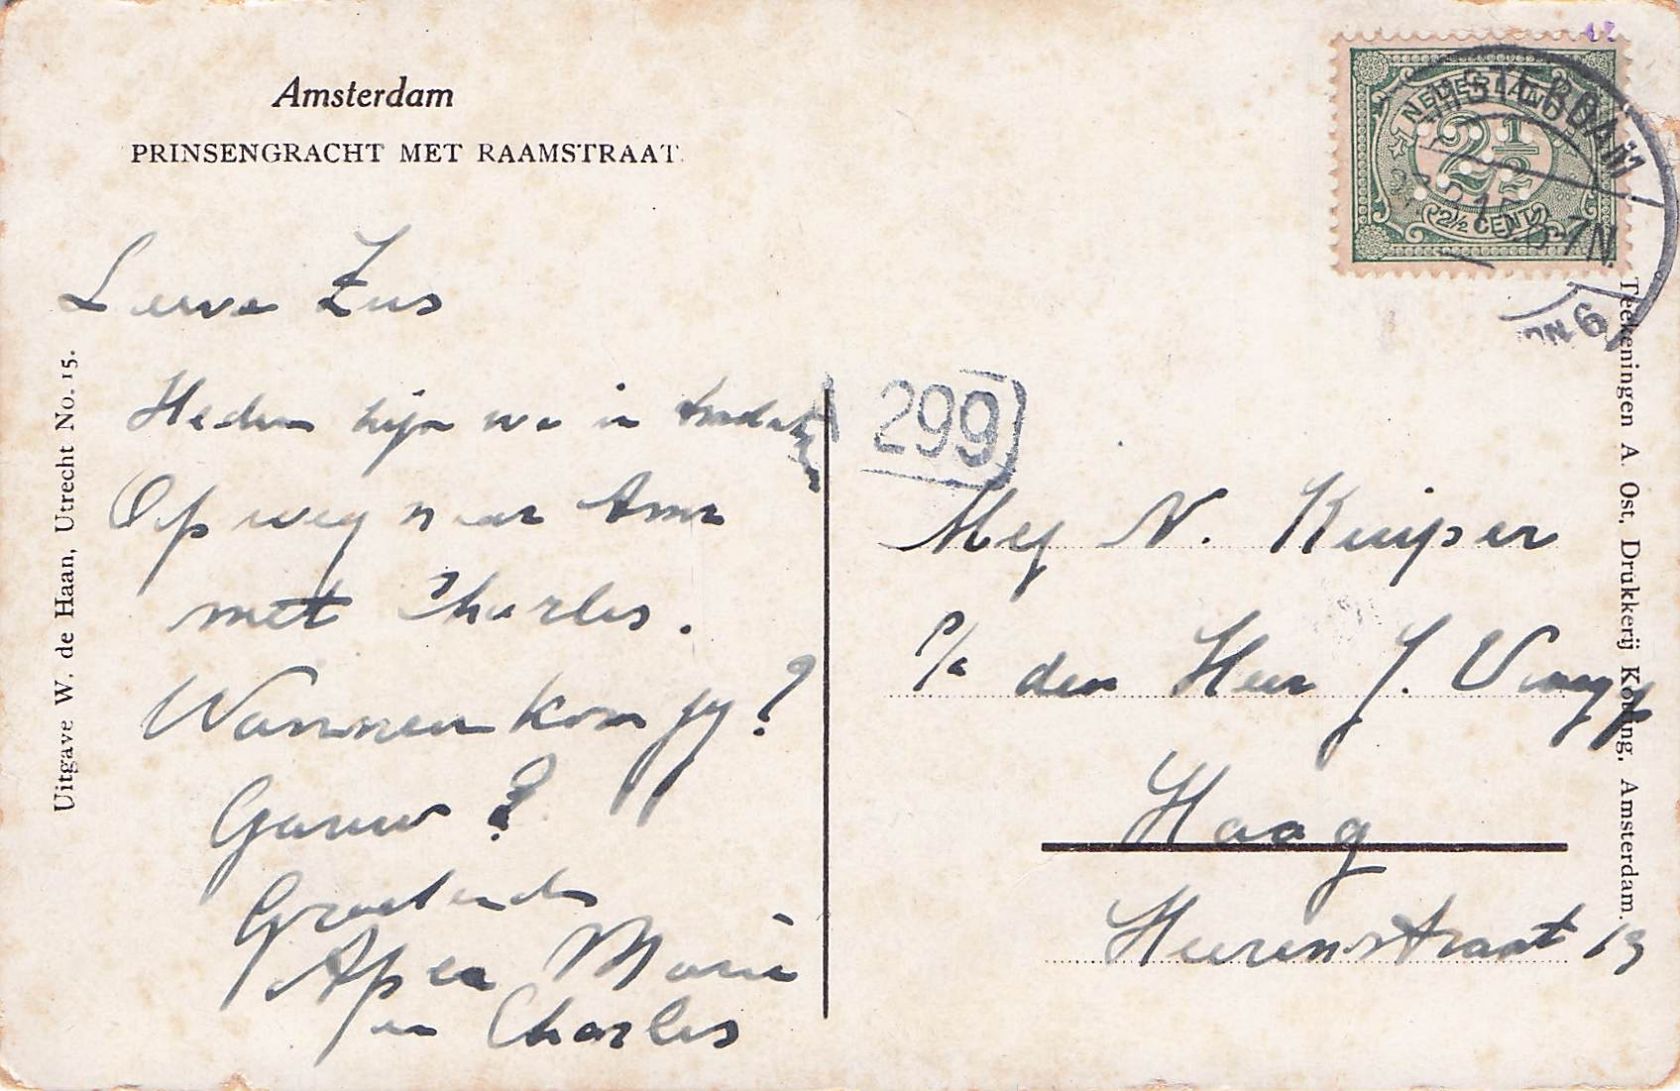 Amsterdam
PRINSENGRACHT MET RAAMSTRAAT
Lieve Zus
Heden zijn we in
Op weg naar
met Charles.
Wanneer kom jij?
Gauw?
Groetend
Ap en Marie
en Charles
Uitgave W. de Haan, Utrecht No. 15.
NEDERLAND
2½
2½ CENT
AMSTERDAM
6-7N.
299
Mej N. Kuiper
P/a den Heer J.
Haag
Heerenstraat 19
Teekeningen A. Ost, Drukkerij Koning, Amsterdam.